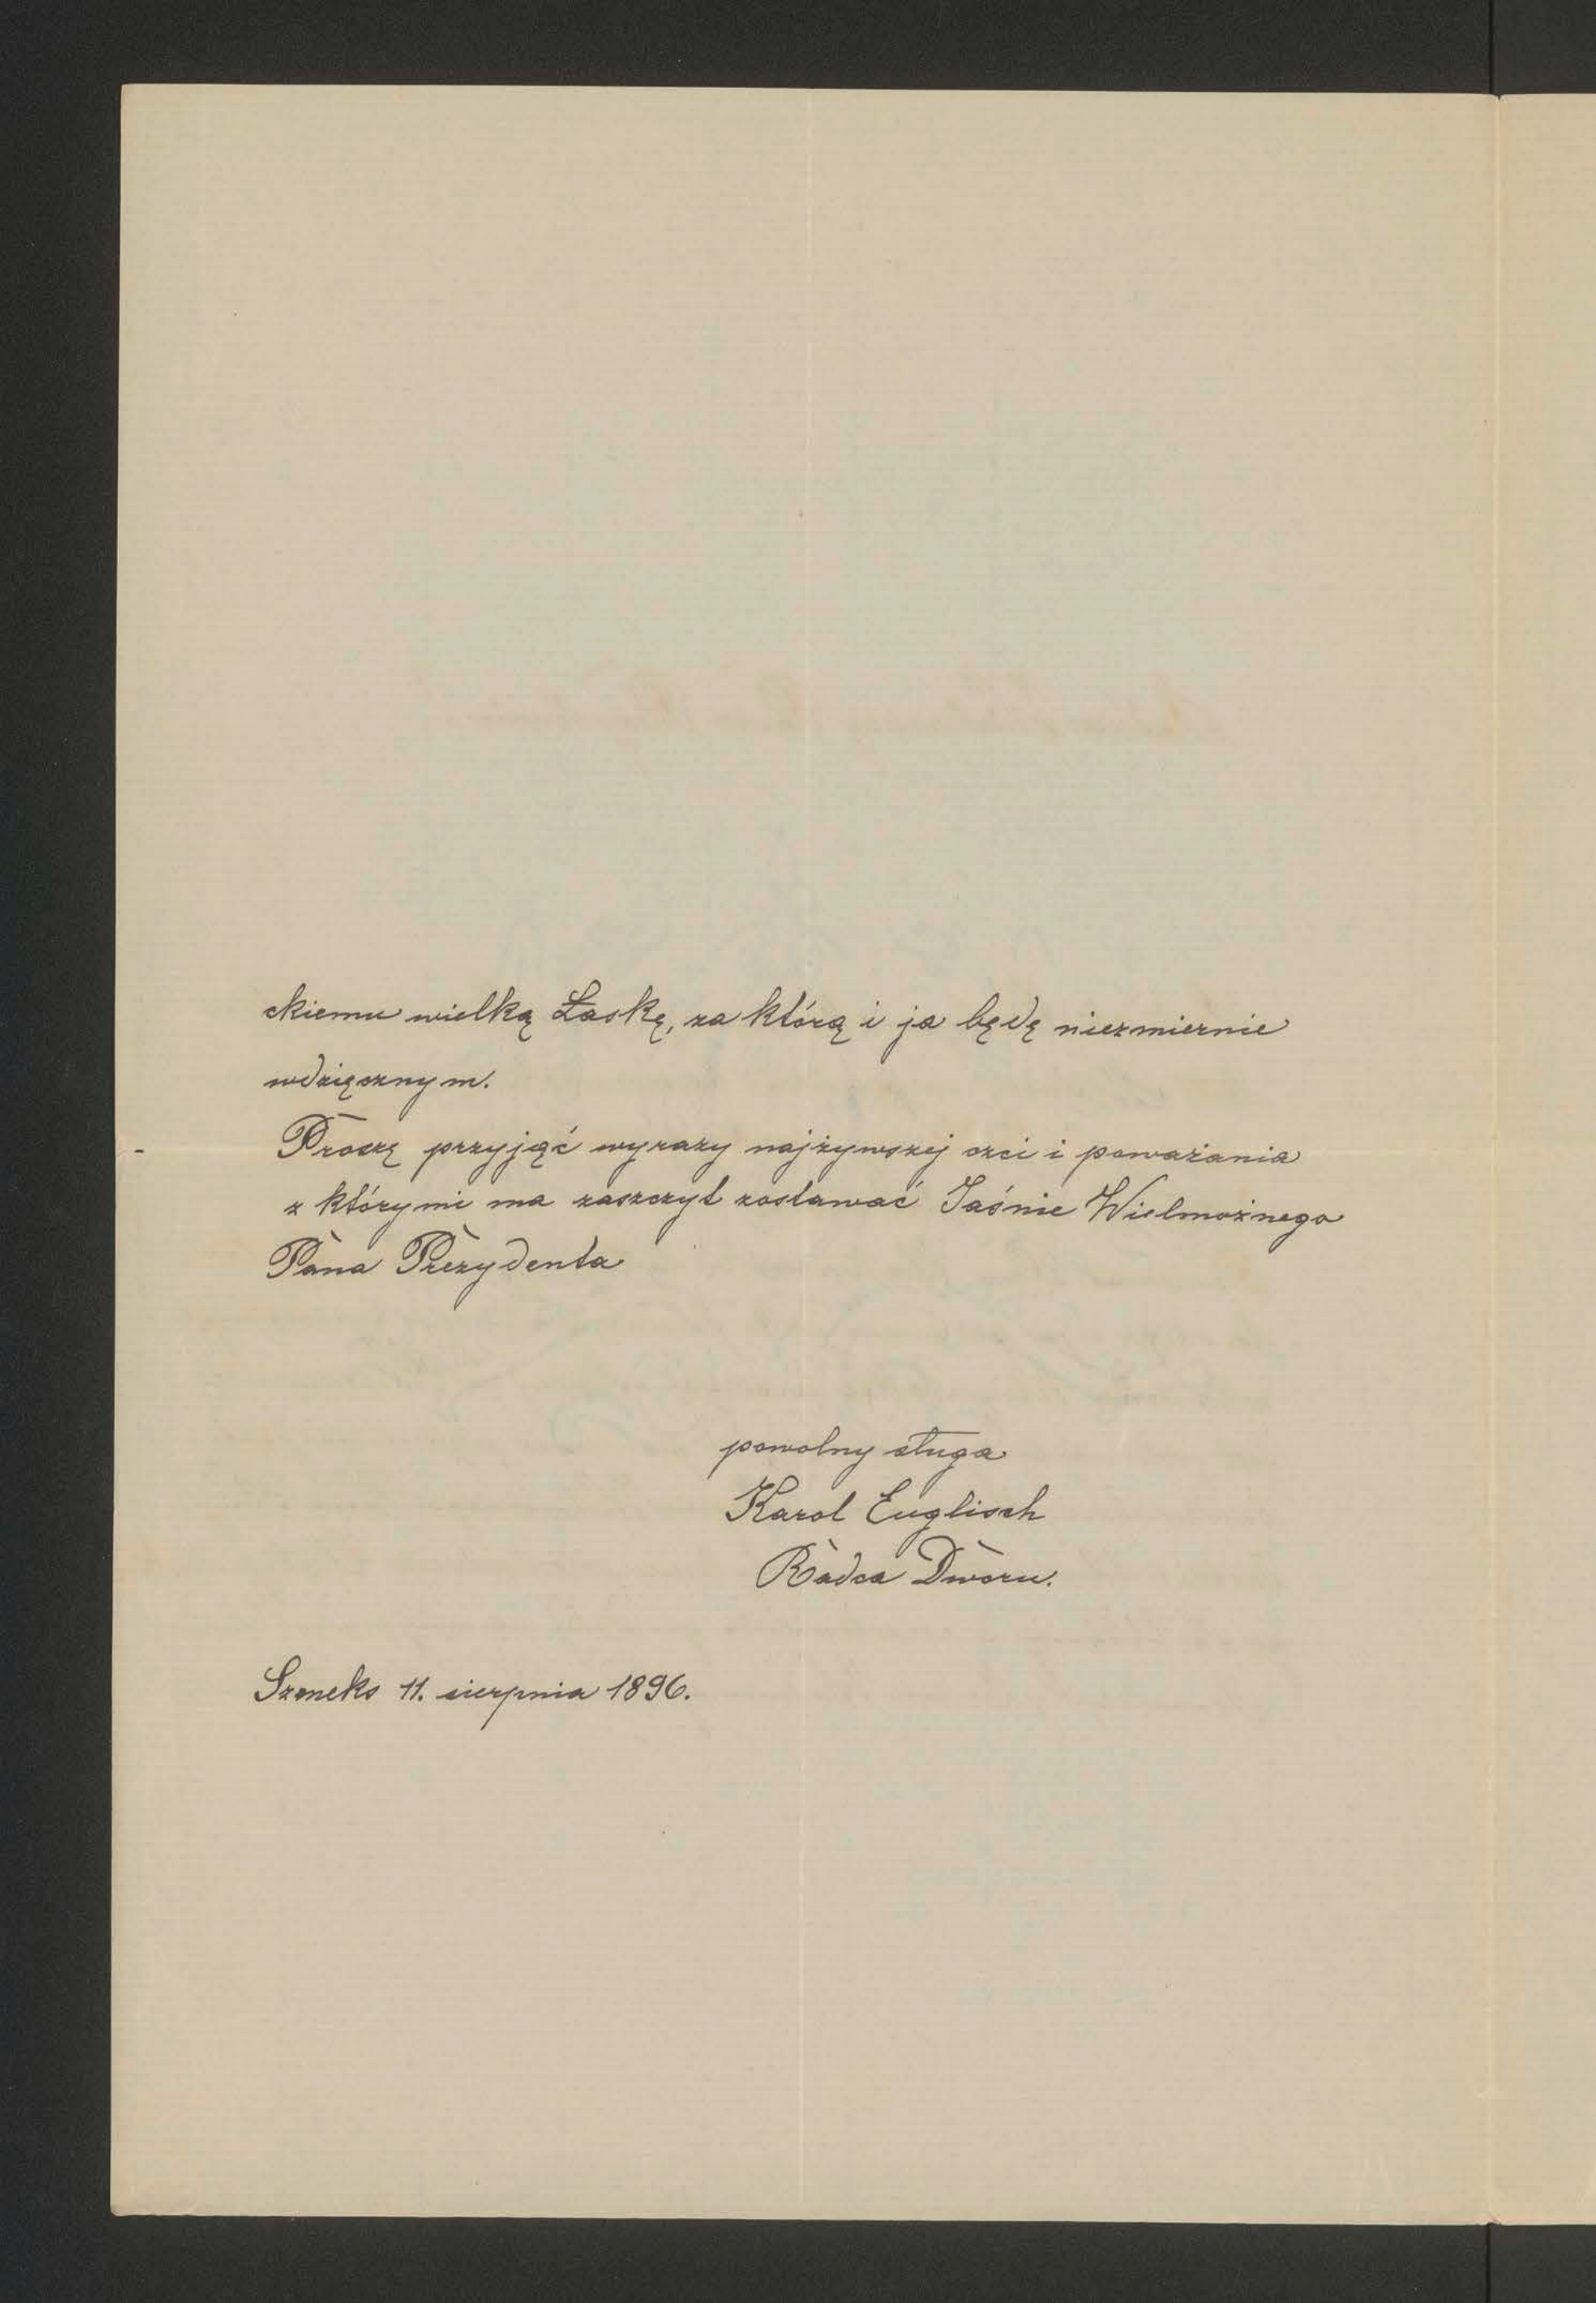 ckiemu wielką Łaskę, za którą i ja będę niezmiernie
wdzięcznym.
Proszę przyjąć wyrazy najżywszej czci i poważania
z którymi ma zaszczyt zostawać Jaśnie Wielmożnego
Pana Prezydenta
powolny sługa
Karol Englisch
Radca Dworu.
11. sierpnia 1896.